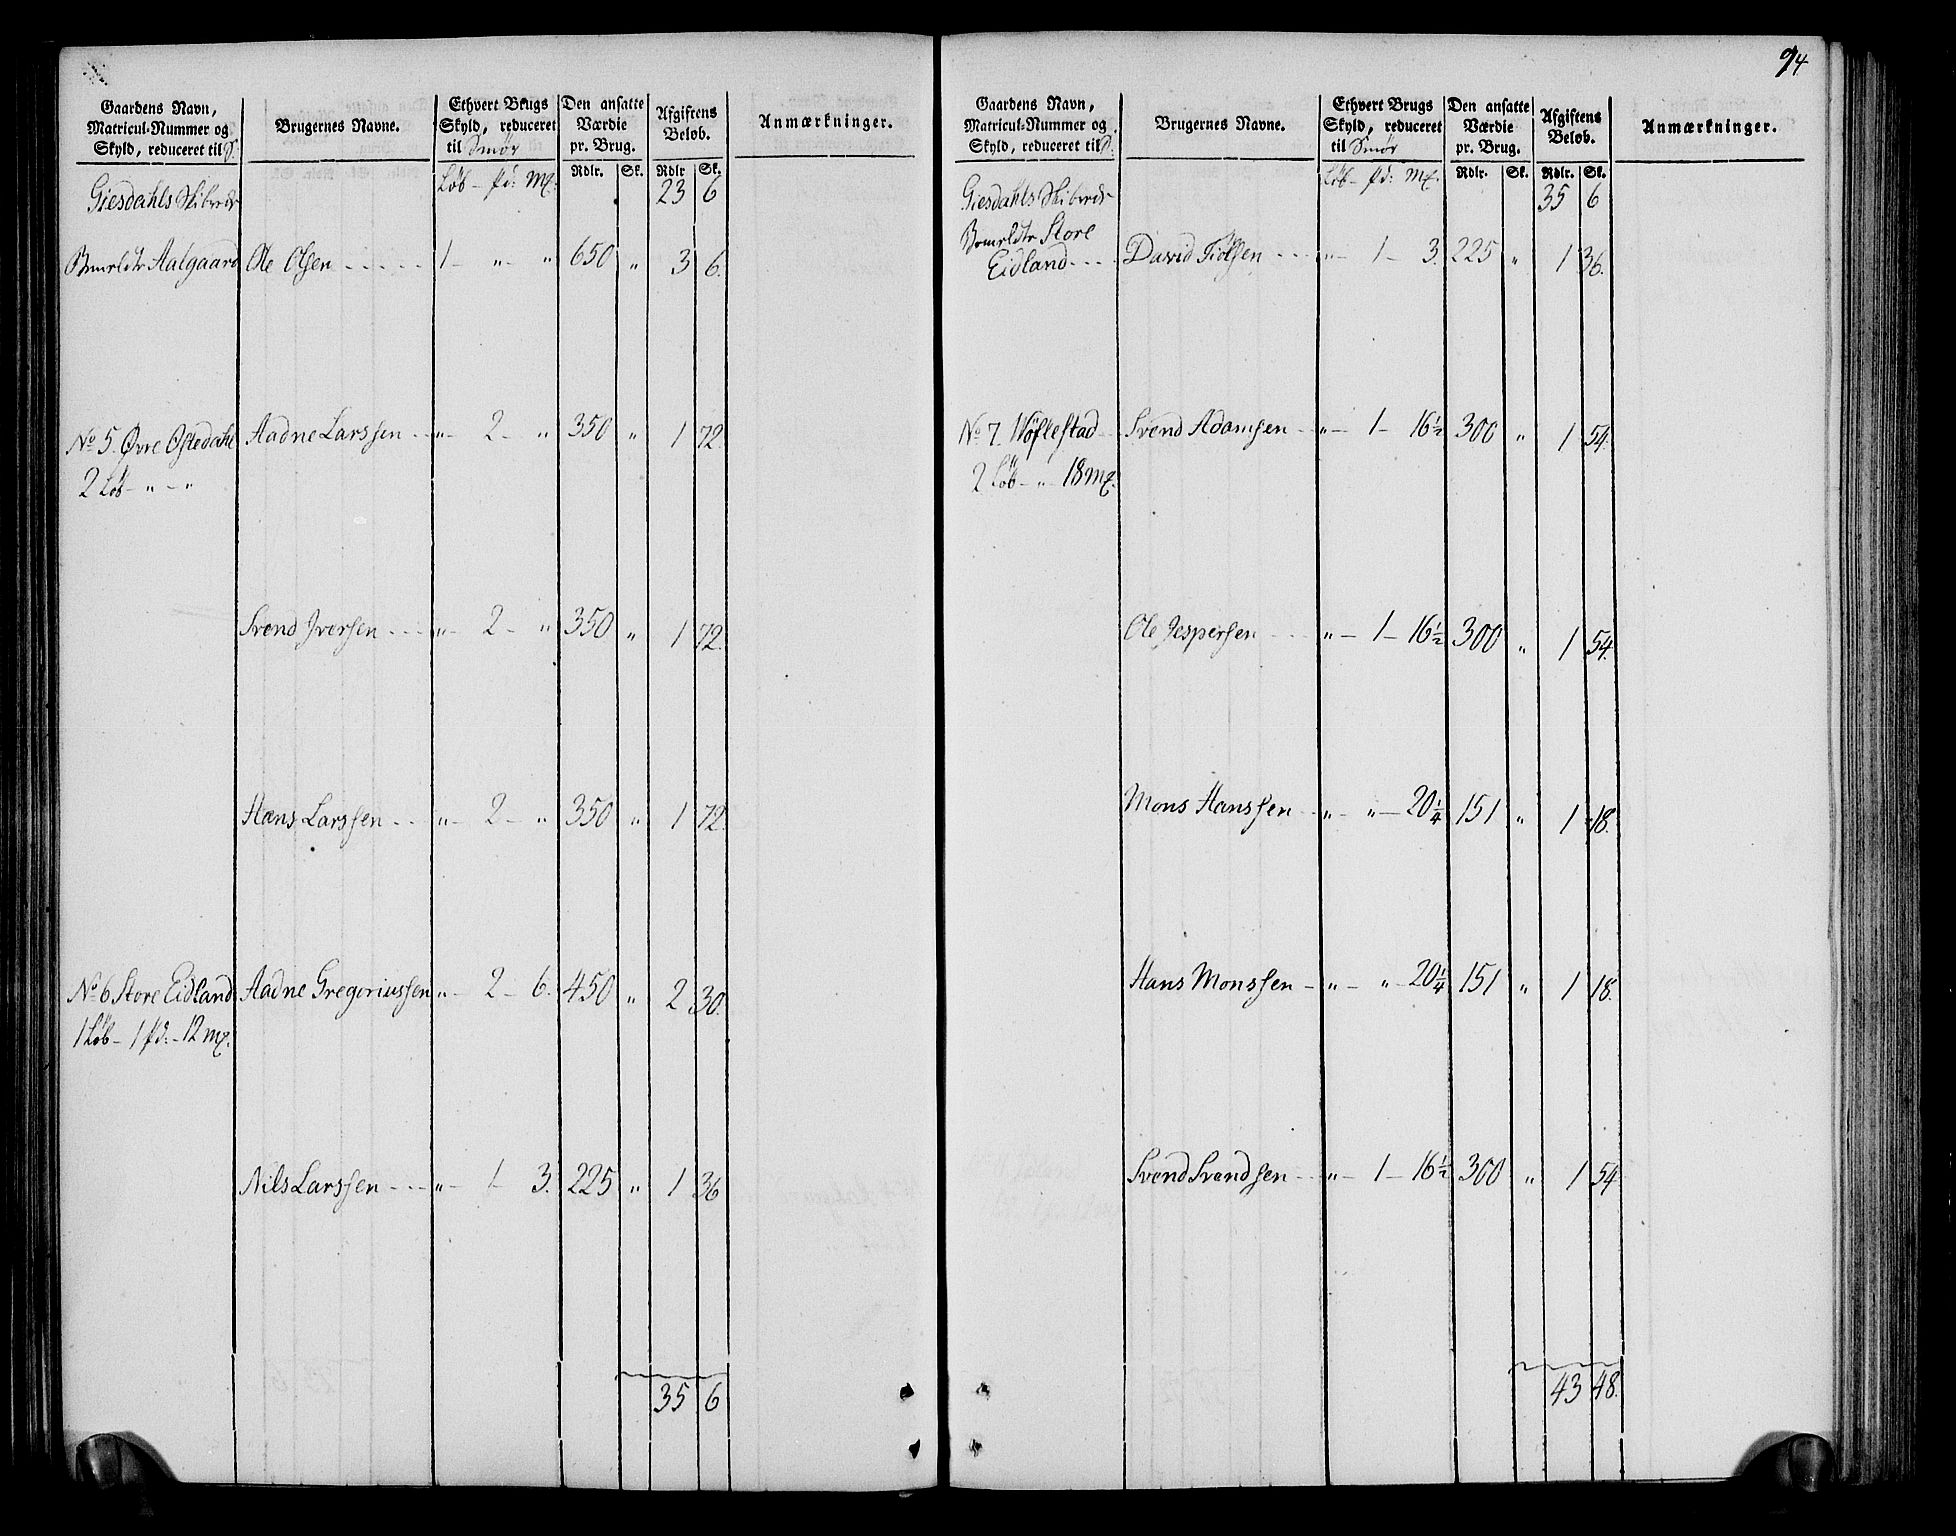 94
Gaardens Navn, Matricul-Nummer og Skyld, reduceret til S. | Brugernes Navne. | Ethvert Brugs Skyld, reduceret til Smör | Den ansatte Værdie pr. Brug. | Afgiftens Beløb. | Anmærkninger.
Löb - pd: Mk. | Rdlr. Sk. | Rdlr Sk.
Giesdahls Skibrede 23 6
Bemeldte Aalgaard Ole Olsen 1 - " - " 650 " 3 6.
No 5. Øvre Ofstedahl Aadne Larssen " - 2 - " 350 " 1 72.
2 Löb - " - "
Svend Iversen " - 2 - " 350 " 1 72.
Hans Larssen " - 2 - " 350 " 1 72.
No 6 Store Eidland Aadne Gregoriussen " - 2 - 6. 450 " 2 30.
1 Löb - 1 pd: - 12 mk.
Nils Larssen " - 1 - 3. 225 " 1 36
35 6
Gaardens Navn, Matricul-Nummer og Skyld, reduceret til S. | Brugernes Navne. | Ethvert Brugs Skyld, reduceret til Smör | Den ansatte Værdie pr. Brug. | Afgiftens Beløb. | Anmærkninger.
Löb - pd: Mk. | Rdlr. Sk. | Rdlr. Sk.
Giesdahls Skibrede 35 6
Bemeldte Store
Eidland David Tiölsen " - 1 - 3. 225 " 1 36.
No 7. Nöflestad Svend Adamsen " - 1 - 16½ 300 " 1 54.
2 Löb - " - 18 mk.
Ole Jespersen " - 1 - 16½ 300 " 1 54.
Mons Hanssen " - " - 20¼ 151 " 1 18.
Hans Monssen " - " - 20¼ 151 " 1 18.
Svend Svendsen " - 1 - 16½ 300 " 1 54
43 48.